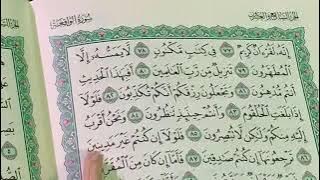 سُورَةُ الْوَاقِعَةِ
إِنَّهُۥ لَقُرْءَانٌ كَرِيمٌ ٧٧ فِى كِتَٰبٍ مَّكْنُونٍ ٧٨ لَّا يَمَسُّهُۥٓ إِلَّا
ٱلْمُطَهَّرُونَ ٧٩ تَنزِيلٌ مِّن رَّبِّ ٱلْعَٰلَمِينَ ٨٠ أَفَبِهَٰذَا ٱلْحَدِيثِ
أَنتُم مُّدْهِنُونَ ٨١ وَتَجْعَلُونَ رِزْقَكُمْ أَنَّكُمْ تُكَذِّبُونَ ٨٢ فَلَوْلَآ
إِذَا بَلَغَتِ ٱلْحُلْقُومَ ٨٣ وَأَنتُمْ حِينَئِذٍ تَنظُرُونَ ٨٤ وَنَحْنُ أَقْرَبُ
إِلَيْهِ مِنكُمْ وَلَٰكِن لَّا تُبْصِرُونَ ٨٥ فَلَوْلَآ إِن كُنتُمْ غَيْرَ مَدِينِينَ
تَرْجِعُونَهَآ إِن كُنتُمْ صَٰدِقِينَ ٨٧ فَأَمَّآ إِن كَانَ مِنَ